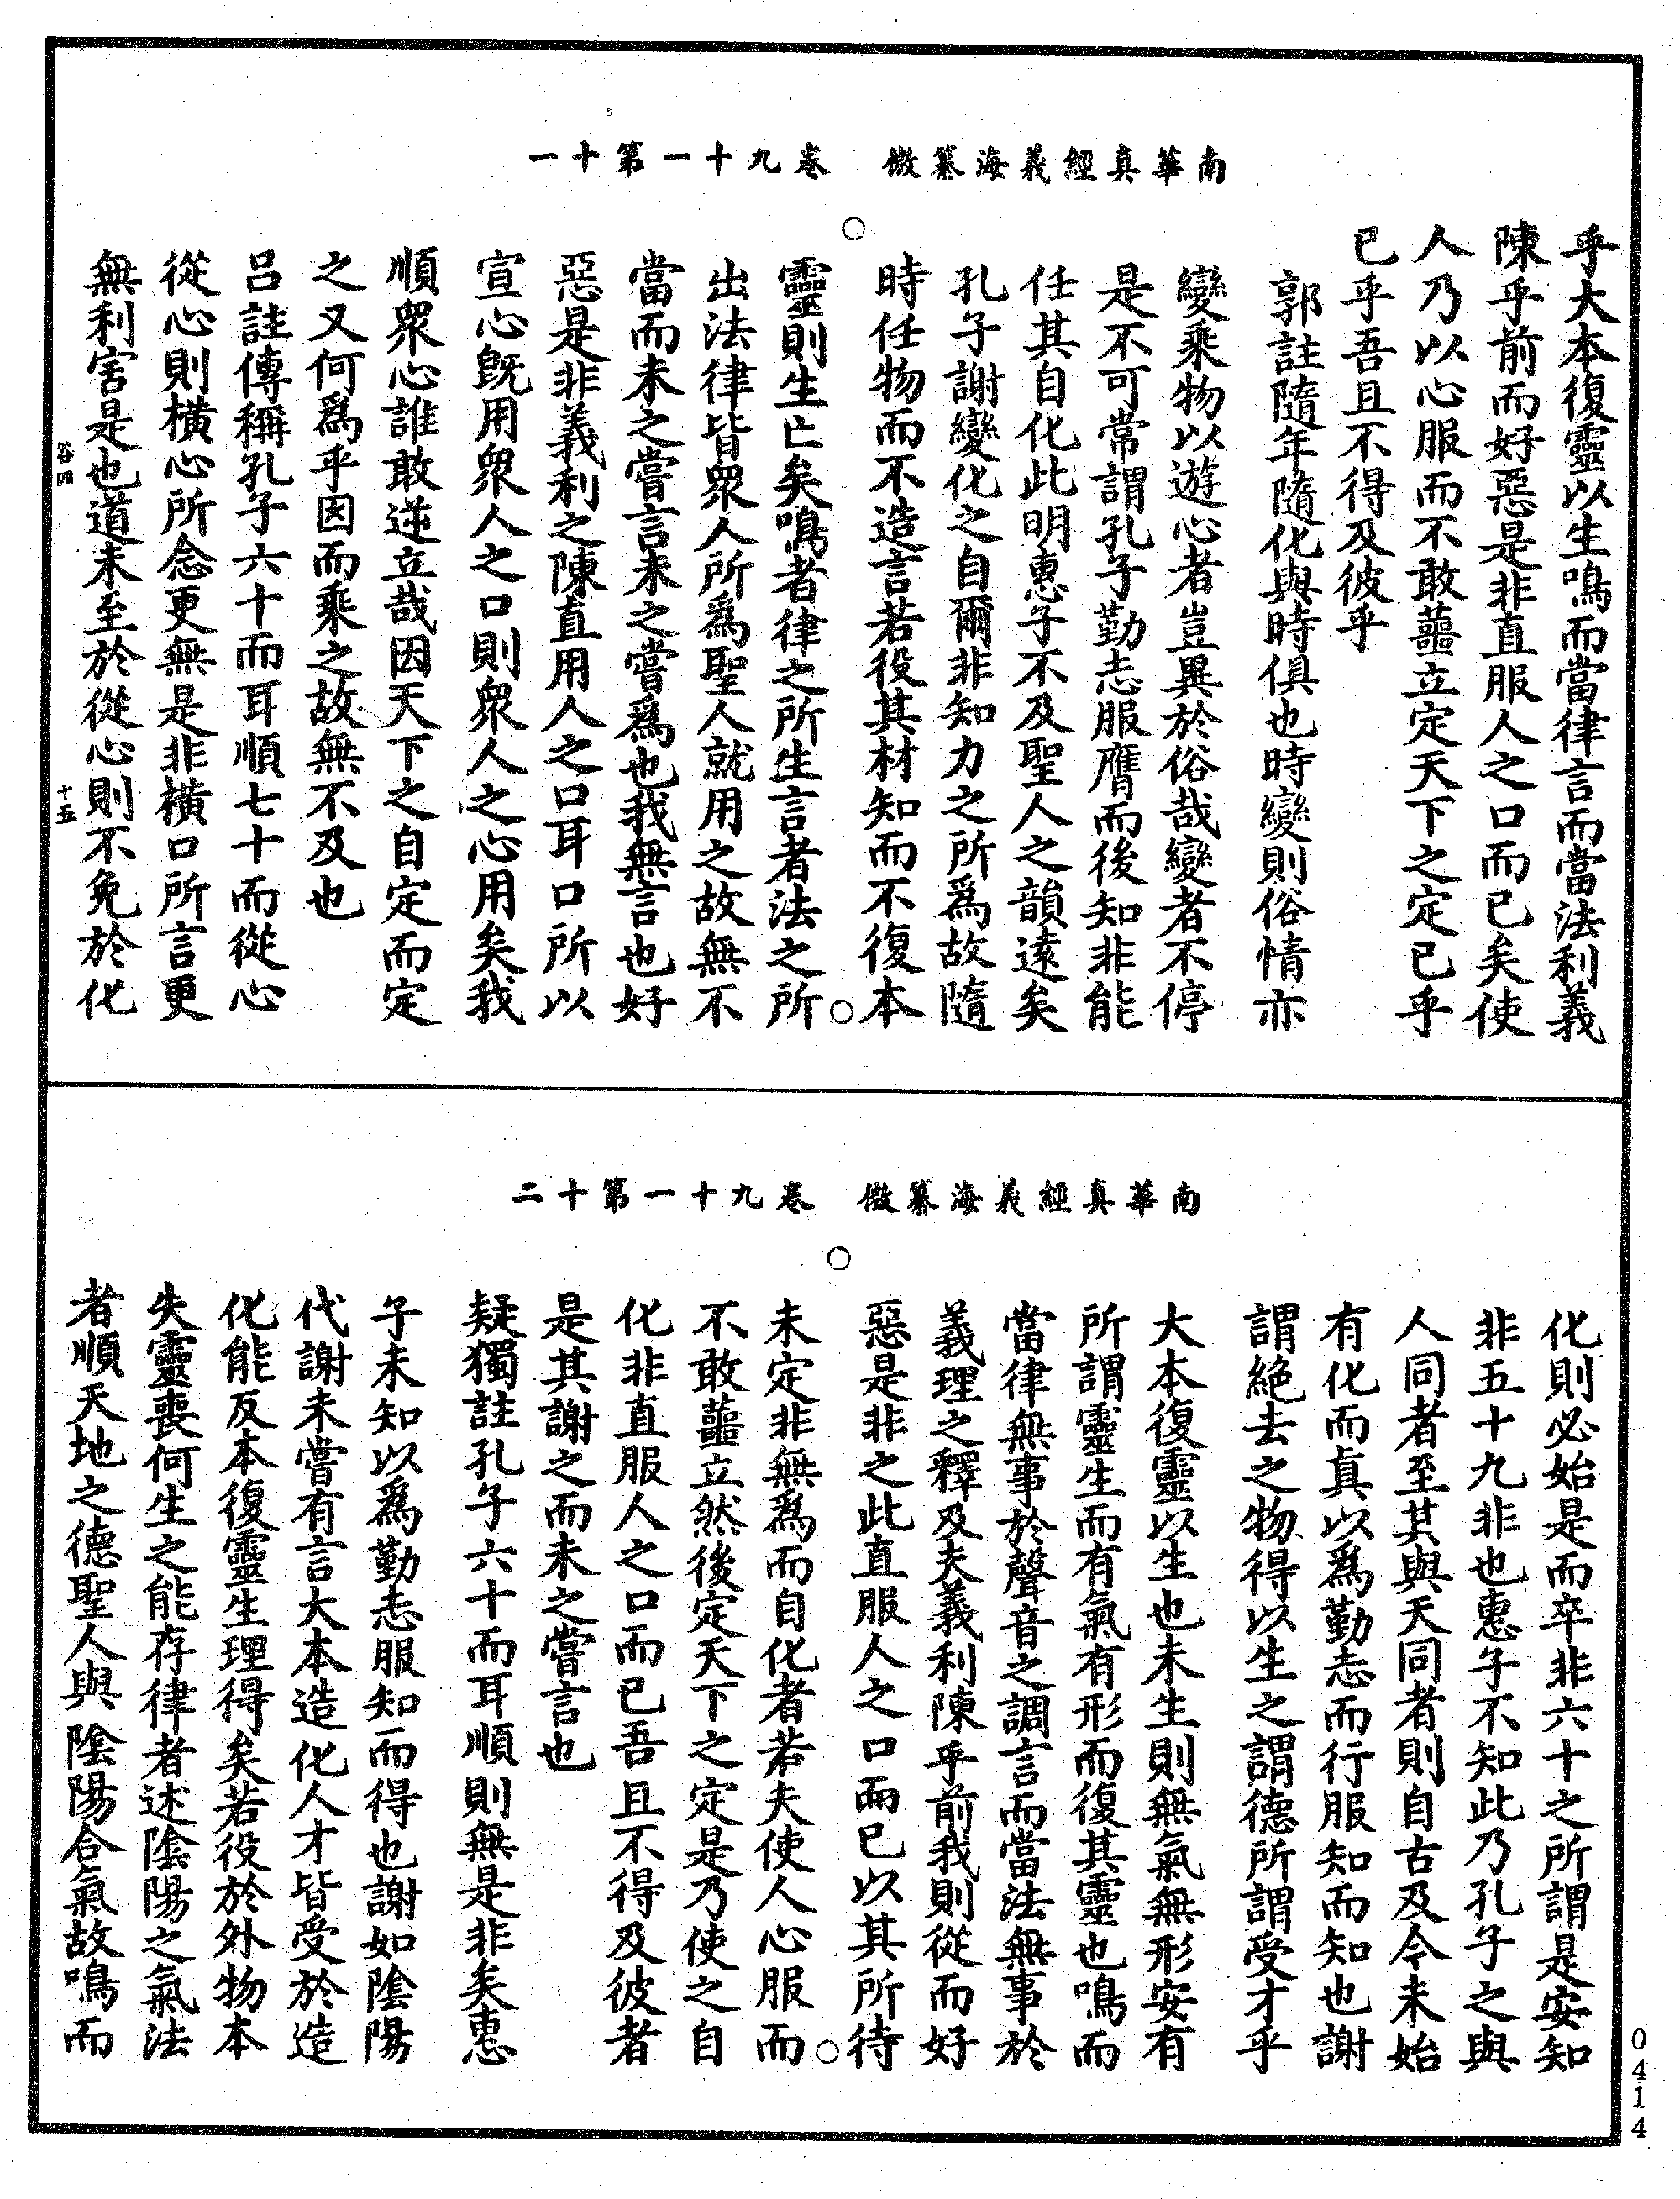 南華真經義海纂微　卷九十一第十一
乎大本復靈以生鳴而當律言而當法利義
陳乎前而好惡是非直服人之口而已矣使
人乃以心服而不敢蘁立定天下之定已乎
已乎吾且不得及彼乎
郭註隨年隨化與時俱也時變則俗情亦
變乘物以遊心者豈異於俗哉變者不停
是不可常謂孔子勤志服膺而後知非能
任其自化此明惠子不及聖人之韻遠矣
孔子謝變化之自爾非知力之所爲故隨
時任物而不造言若役其材知而不復本
靈則生亡矣鳴者律之所生言者法之所
出法律皆衆人所爲聖人就用之故無不
當而未之嘗言未之嘗爲也我無言也好
惡是非義利之陳直用人之口耳口所以
宣心旣用衆人之口則衆人之心用矣我
順衆心誰敢逆立哉因天下之自定而定
之又何爲乎因而乘之故無不及也
呂註傳稱孔子六十而耳順七十而從心
從心則橫心所念更無是非橫口所言更
無利害是也道未至於從心則不免於化
谷四　十五
南華真經義海纂微　卷九十一第十二
化則必始是而卒非六十之所謂是安知
非五十九非也惠子不知此乃孔子之與
人同者至其與天同者則自古及今未始
有化而真以爲勤志而行服知而知也謝
謂絶去之物得以生之謂德所謂受才乎
大本復靈以生也未生則無氣無形安有
所謂靈生而有氣有形而復其靈也鳴而
當律無事於聲音之調言而當法無事於
義理之釋及夫義利陳乎前我則從而好
惡是非之此直服人之口而已以其所待
未定非無爲而自化者若夫使人心服而
不敢蘁立然後定天下之定是乃使之自
化非直服人之口而已吾且不得及彼者
是其謝之而未之嘗言也
疑獨註孔子六十而耳順則無是非矣惠
子未知以爲勤志服知而得也謝如陰陽
代謝未嘗有言大本造化人才皆受於造
化能反本復靈生理得矣若役於外物本
失靈喪何生之能存律者述陰陽之氣法
者順天地之德聖人與陰陽合氣故鳴而
0414